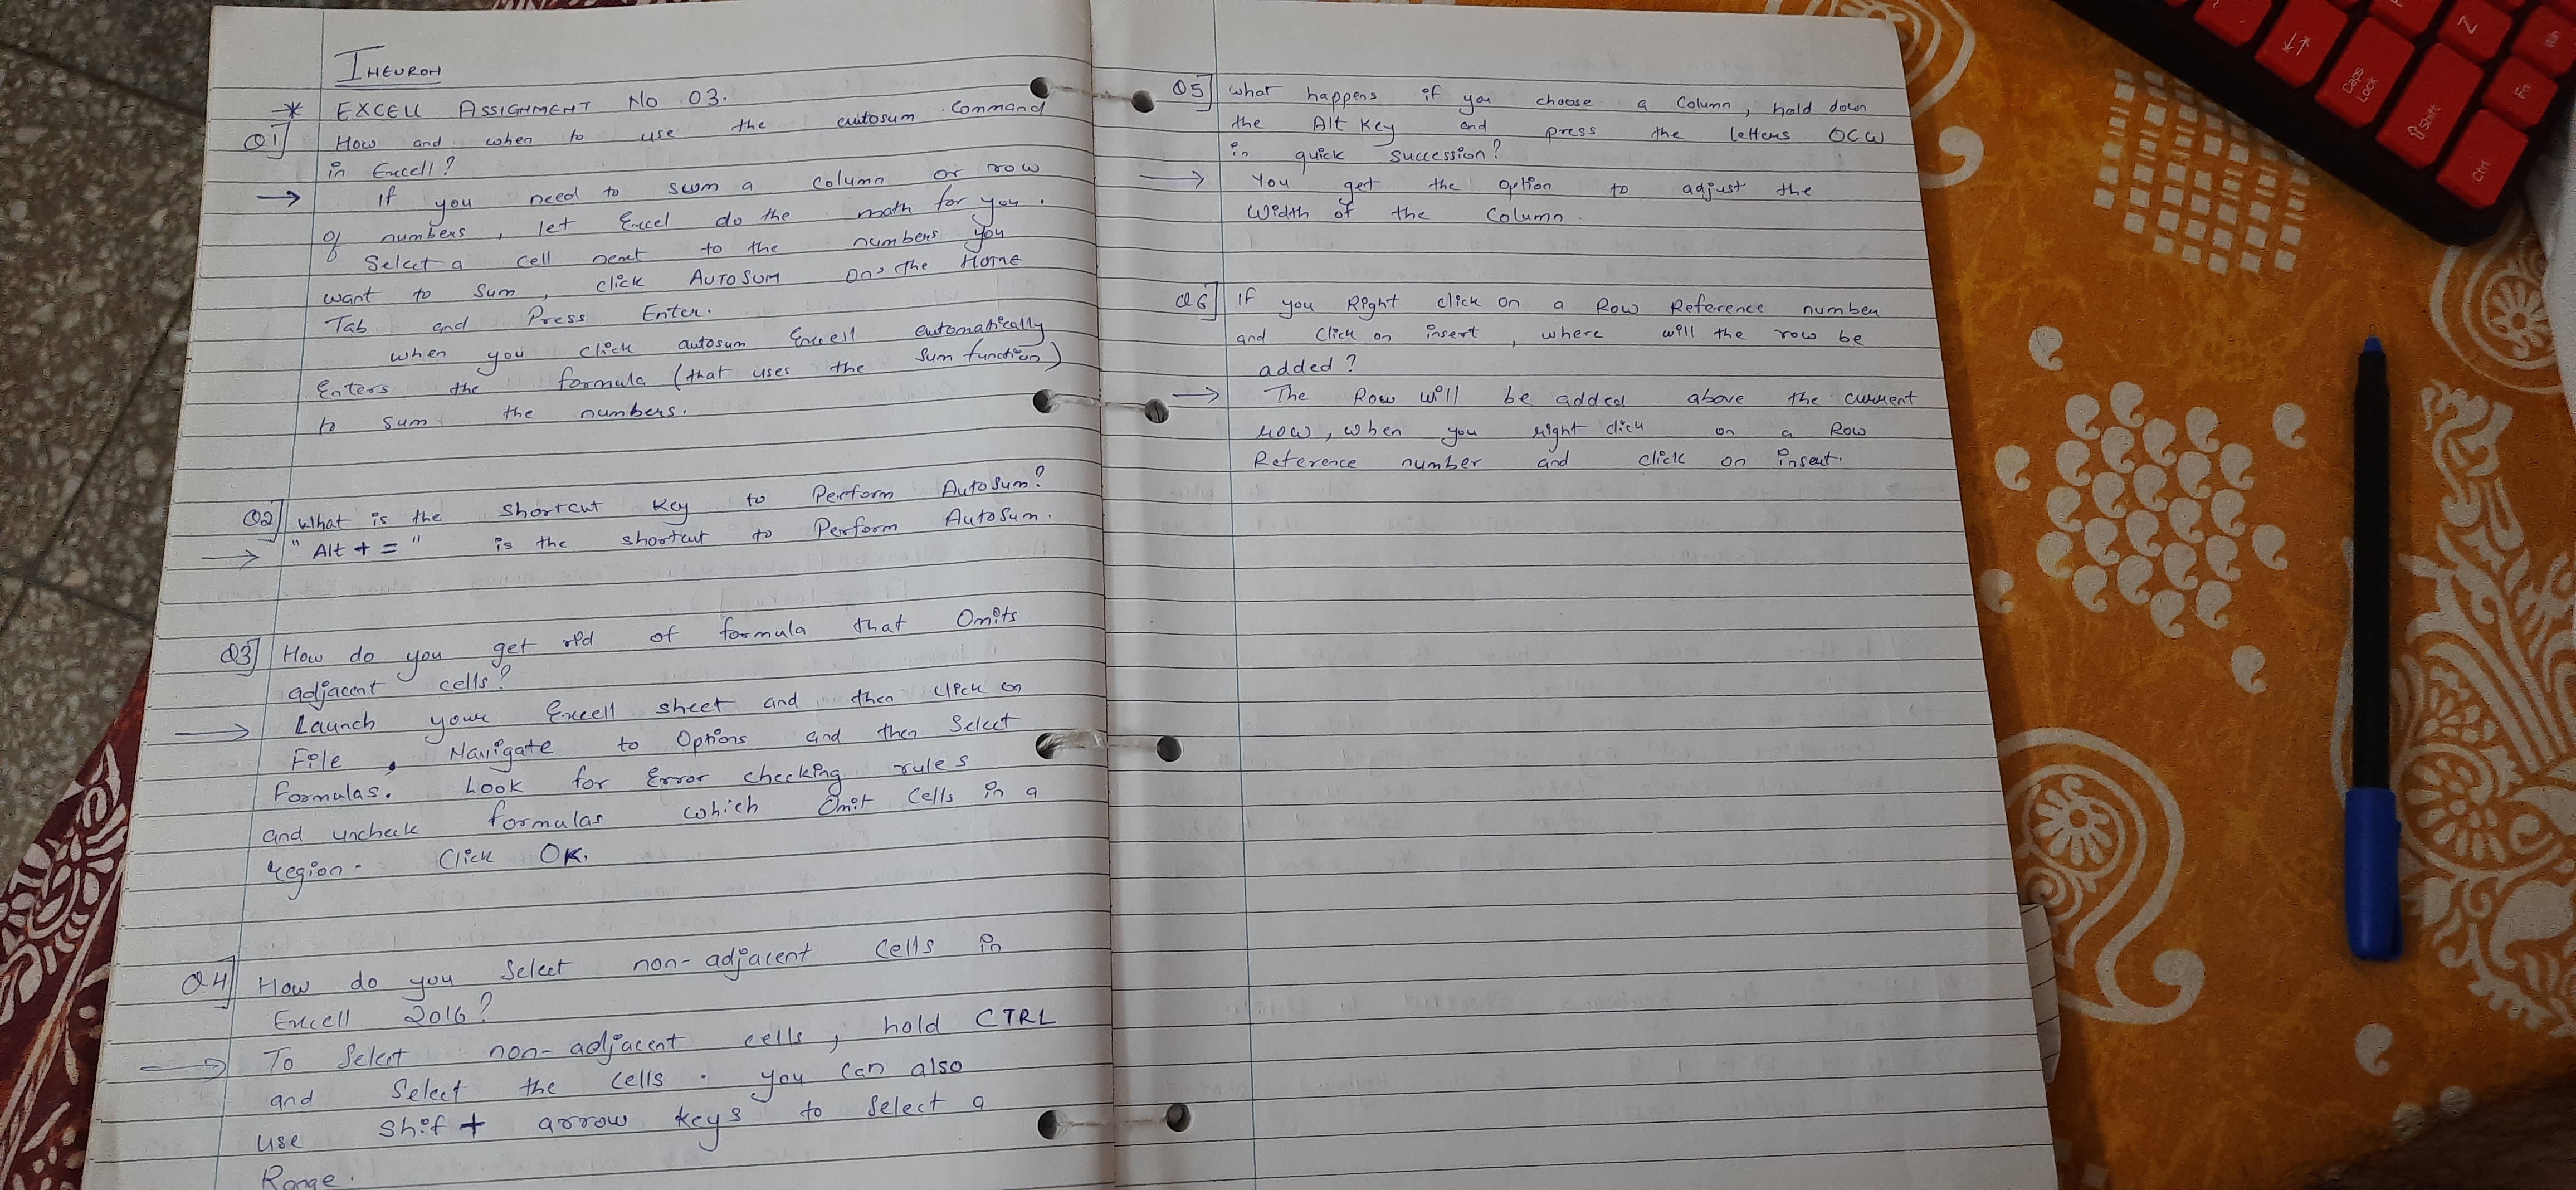 INEURON
* EXCELL ASSIGNMENT No 03.
Q1] How and when to use the autosum Command
in Excell?
→ If you need to sum a column or row
of numbers, let Excel do the math for you.
Select a cell next to the numbers you
want to sum, click AUTOSUM on the Home
Tab and Press Enter.
when you click autosum Excell automatically
Enters the formula (that uses the sum function)
to sum the numbers.
Q2] What is the shortcut key to Perform AutoSum?
→ "Alt + =" is the shortcut to Perform AutoSum.
Q3] How do you get rid of formula that Omits
adjacent cells?
→ Launch your Excell sheet and then click on
File. Navigate to Options and then Select
Formulas. Look for Error checking rules
and uncheck formulas which Omit Cells in a
region. Click OK.
Q4] How do you Select non-adjacent Cells in
Excell 2016?
→ To Select non-adjacent cells, hold CTRL
and Select the cells. you can also
use Shift + arrow keys to select a
Range.
Q5] What happens if you choose a Column, hold down
the Alt Key and press the letters OCW
in quick succession?
→ You get the Option to adjust the
Width of the Column.
Q6] If you Right click on a Row Reference number
and Click on insert, where will the row be
added?
→ The Row will be added above the current
row, when you right click on a Row
Reference number and click on insert.
Z
Caps
Lock
Shift
Fn
Ctrl